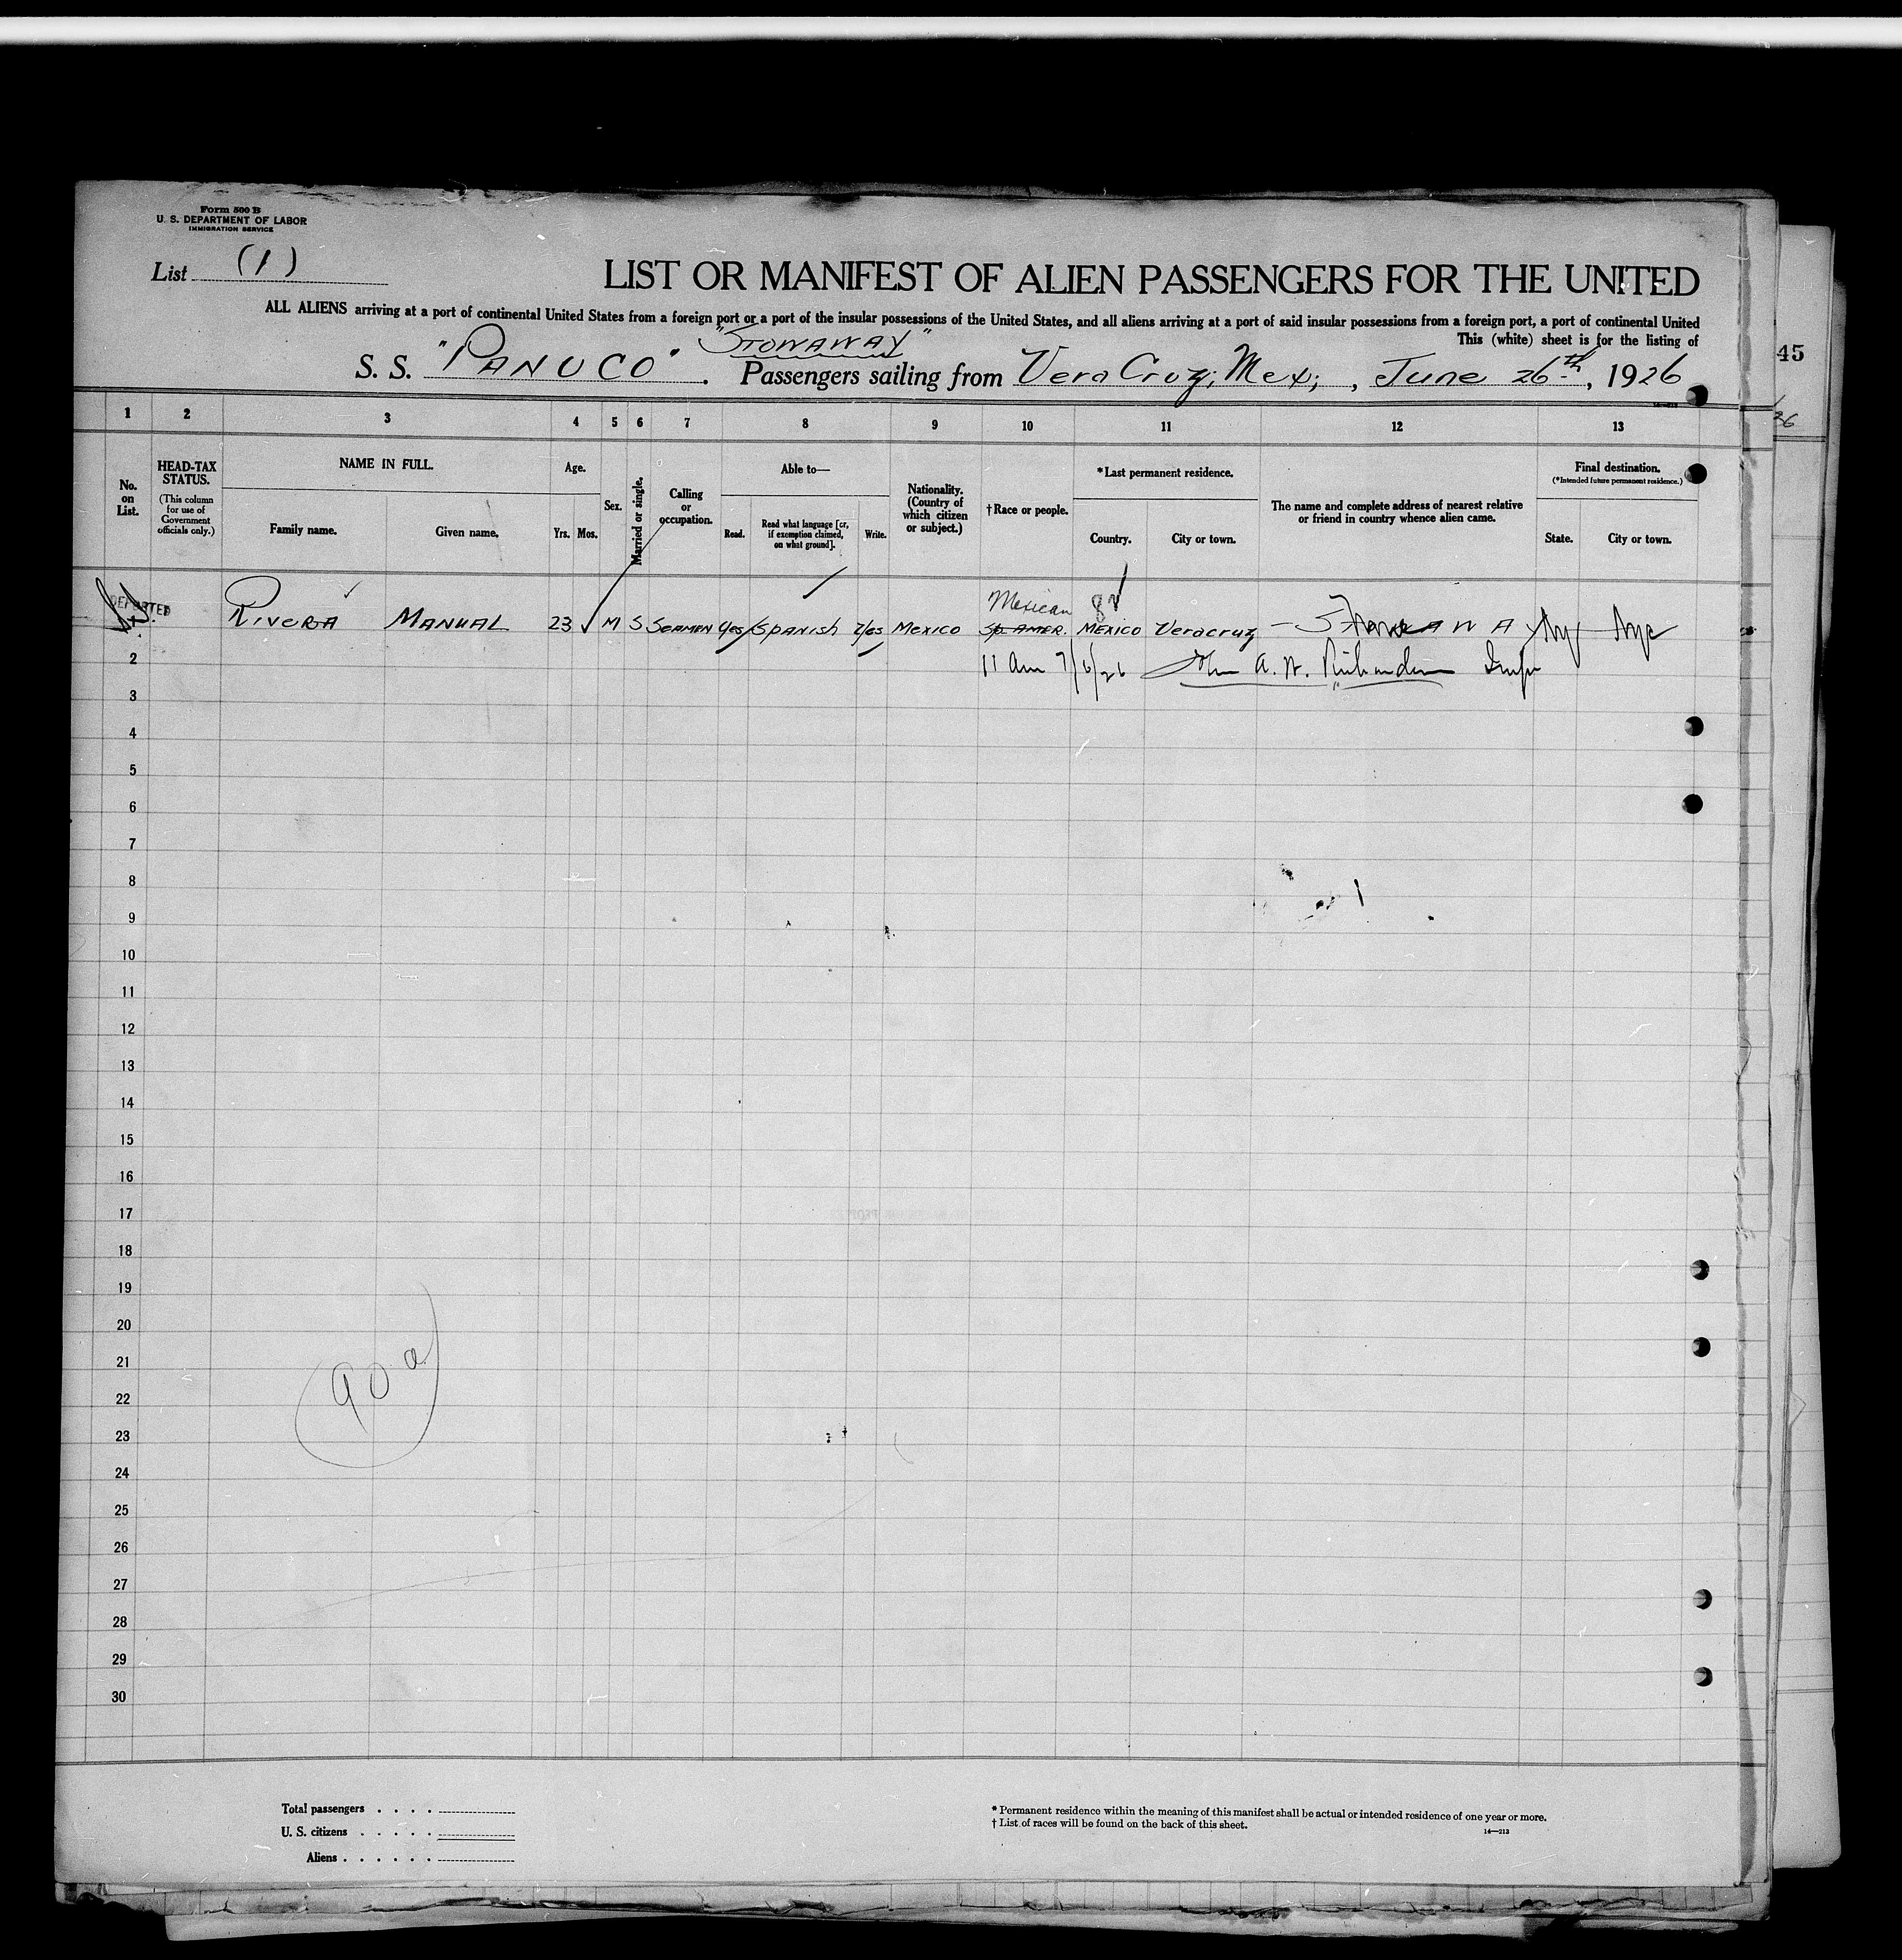 Form 500 B
U. S. DEPARTMENT OF LABOR
IMMIGRATION SERVICE
List (1)
LIST OR MANIFEST OF ALIEN PASSENGERS FOR THE UNITED
ALL ALIENS arriving at a port of continental United States from a foreign port or a port of the insular possessions of the United States, and all aliens arriving at a port of said insular possessions from a foreign port, a port of continental United
This (white) sheet is for the listing of
"STOWAWAY"
S. S. "PANUCO" . Passengers sailing from Vera Cruz; Mex; , June 26th , 1926
45
36
1 2 3 4 5 6 7 8 9 10 11 12 13
No. on List.
HEAD-TAX STATUS.
(This column for use of Government officials only.)
NAME IN FULL.
Family name. Given name.
Age.
Yrs. Mos.
Sex.
Married or single.
Calling or occupation.
Able to—
Read.
Read what language [or, if exemption claimed, on what ground].
Write.
Nationality. (Country of which citizen or subject.)
†Race or people.
*Last permanent residence.
Country. City or town.
The name and complete address of nearest relative or friend in country whence alien came.
Final destination.
(*Intended future permanent residence.)
State. City or town.
DEPORTED
Mexican
RIVERA MANUAL 23 M S SEAMEN Yes SPANISH Yes MEXICO SP. AMER. MEXICO Veracruz - STOWAWAY NY NYC
2 11 am 7/6/26 John A. W. Richardson Insp
3
4
5
6
7
8
9
10
11
12
13
14
15
16
17
18
19
20
21
90 a
22
23
24
25
26
27
28
29
30
Total passengers . . . .
U. S. citizens . . . . .
Aliens . . . . . .
* Permanent residence within the meaning of this manifest shall be actual or intended residence of one year or more.
† List of races will be found on the back of this sheet.
14—213